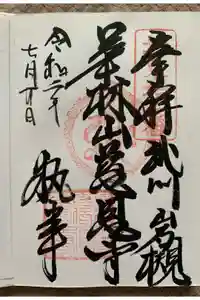 奉拝 武州 岩槻
華林山慈恩寺
令和二年
七月廿日
執筆